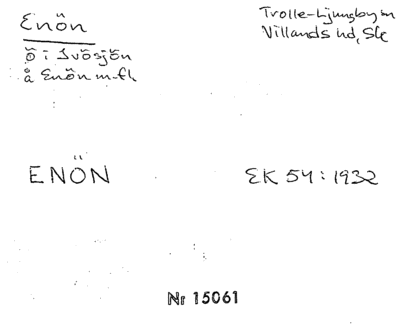 Enön
ö i Ivösjön
å Enön m.fl
Trolle-Ljungby sn
Villands hd, Sk
ENÖN
EK 54:1932
Nr 15061